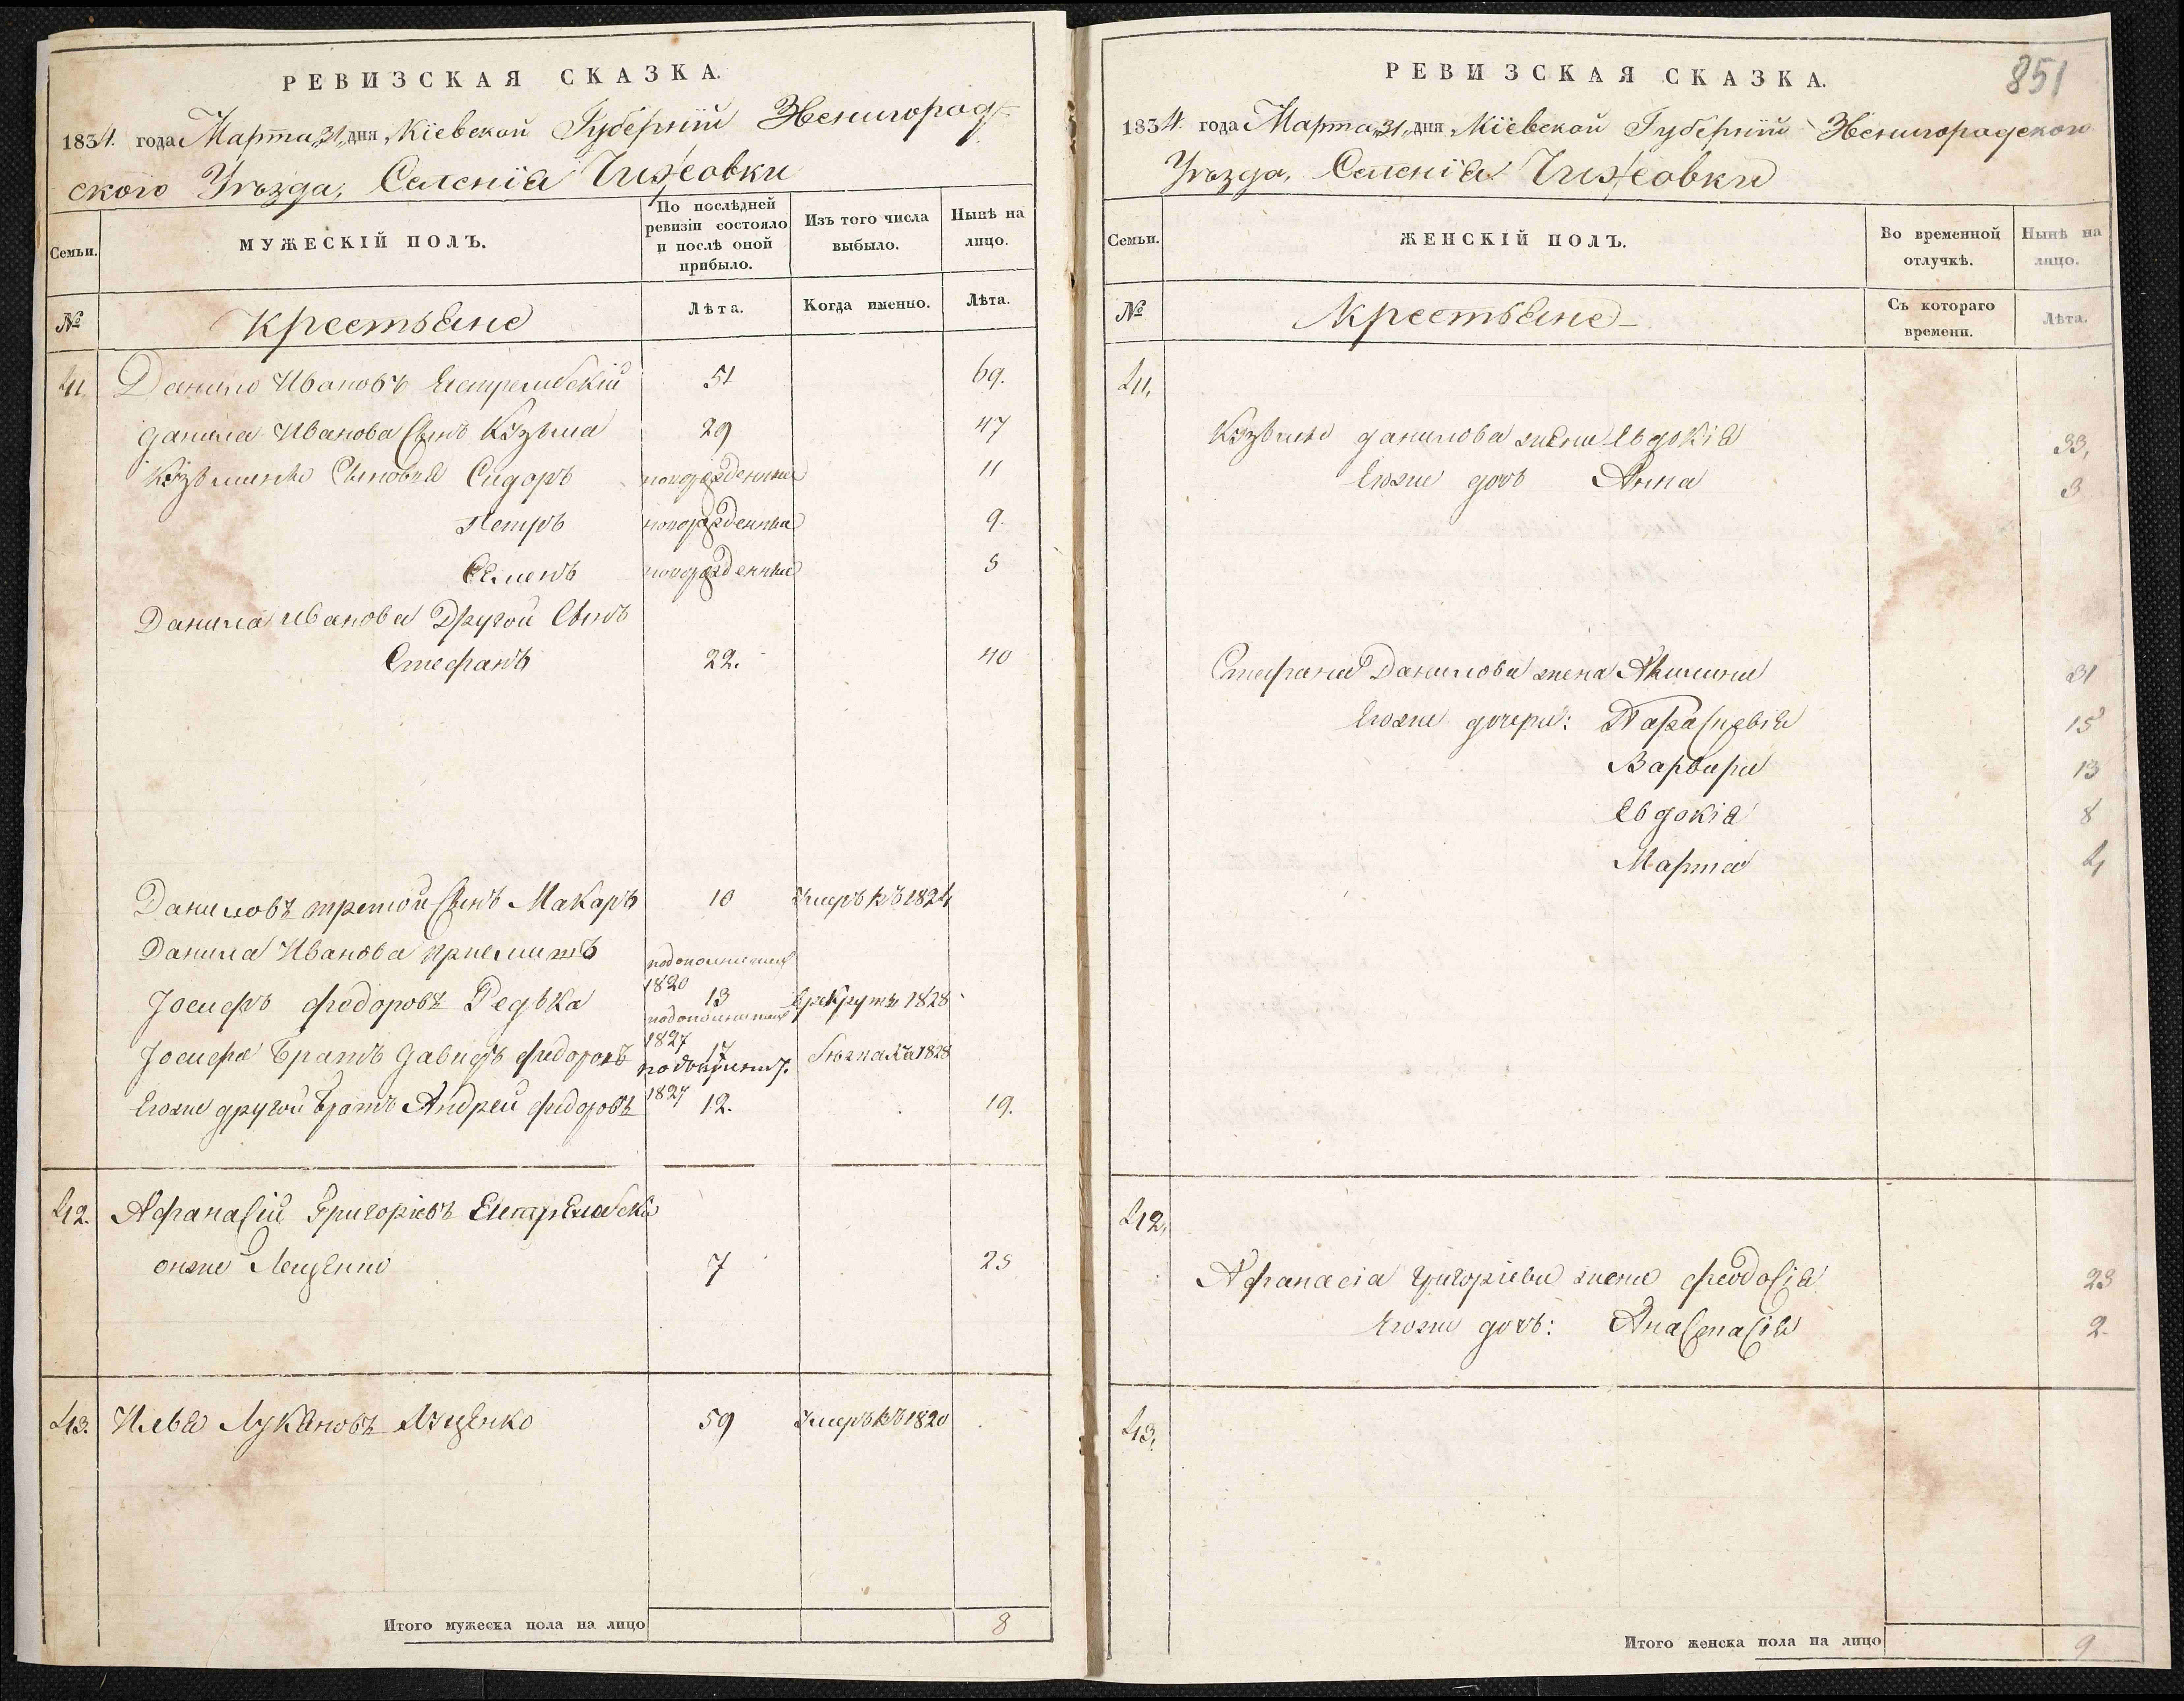 РЕВИЗСКАЯ СКАЗКА.
1834. года Марта „31„ дня Кіевской Губерніи Звенигород-
ского Уѣзда, Селенія Чижовки
Семьи.
МУЖЕСКІЙ ПОЛЪ.
По послѣдней ревизіи состояло и послѣ оной прибыло.
Изъ того числа выбыло.
Нынѣ на лицо.
№
Крестьяне
Лѣта.
Когда именно.
Лѣта.
41. Данило Ивановъ 51 69.
Данила Иванова Сынъ Кузьма 29 47
Кузьмины Сыновья Сидоръ новорожденные 11
Петръ новорожденны 9.
Семенъ новорожденные 5
Данила Иванова Другой Сынъ
Стефанъ 22. 40
Даниловъ третой Сынъ Макаръ 10 Умеръ въ 1824
Данила Иванова приемишъ
1820
Іосифъ Федоровъ Редька 13 в рекруты 1828
1827
Іосифа братъ Давидъ Федоровъ 17 1828
Егоже другой братъ Андрей Федоровъ 1827 12. 19.
42. Афанасій Григоріевъ
онже Лещенко 7 25
43. Илья Лукановъ 59 Умеръ въ 1820
Итого мужеска пола на лицо 8
851
РЕВИЗСКАЯ СКАЗКА.
1834. года Марта „31„ дня Кіевской Губерніи Звенигородского
Уѣзда, Селенія Чижовки
Семьи.
ЖЕНСКІЙ ПОЛЪ.
Во временной отлучкѣ.
Нынѣ на лицо.
№
Крестьяне
Съ котораго времени.
Лѣта.
41.
Кузьмы Данилова жена Евдокія 33,
Егоже дочь Анна 3
Стефана Данилова жена Акилина 31
Егоже дочери: Параскевія 15
Варвара 13
Евдокія 8
Марта 4
42.
Афанасія Григоріева жена Феодосія 23
Егоже дочь: Анастасія 2
43.
Итого женска пола на лицо 9